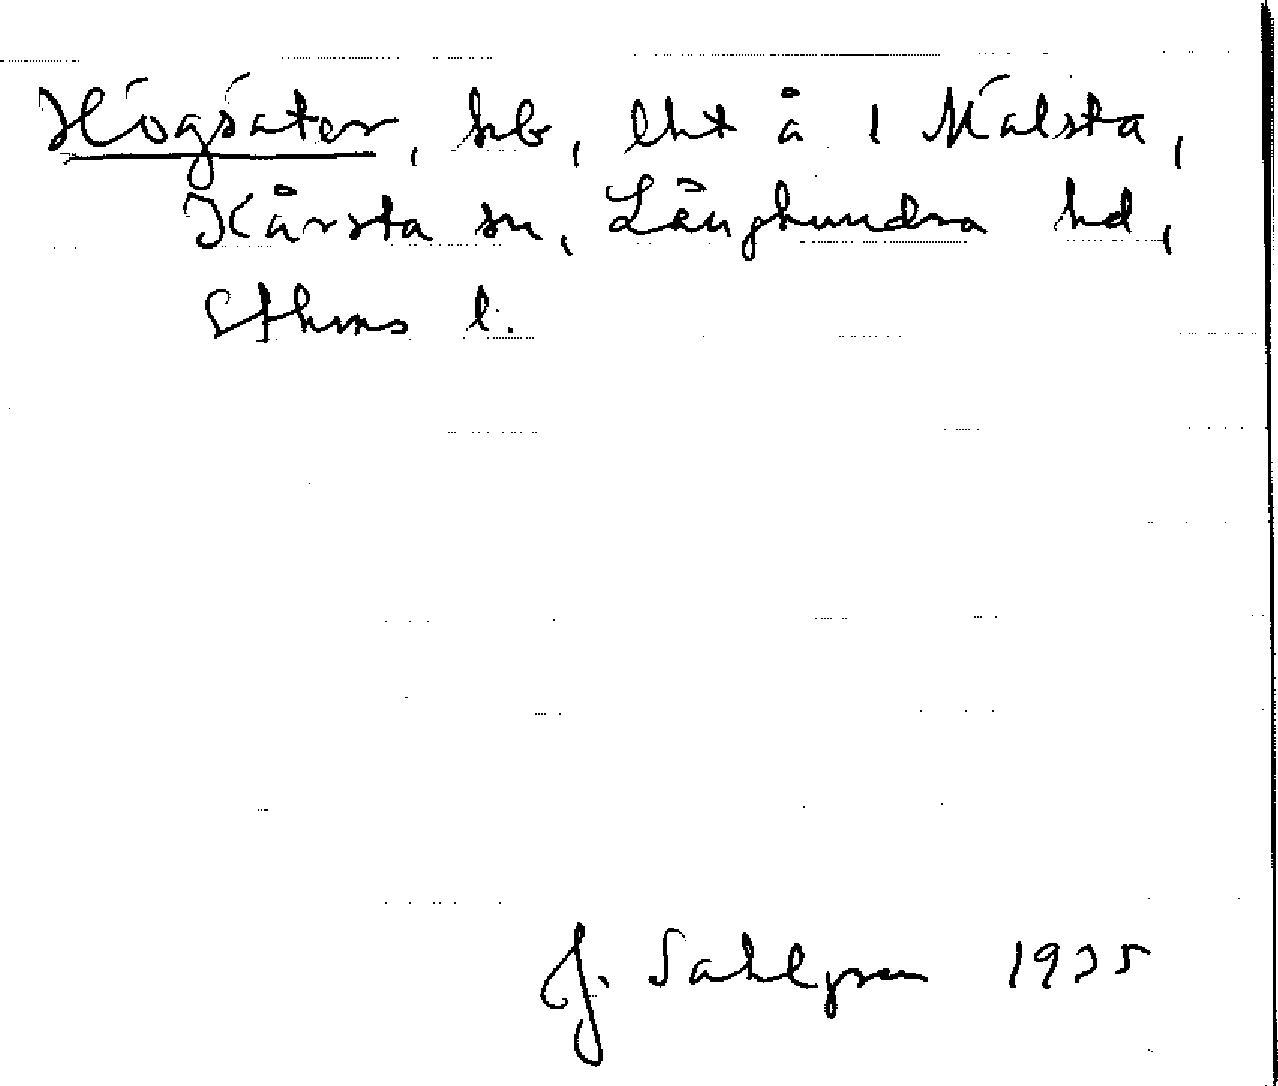 Högsäter, , lht å 1 Mälsta,
Kårsta sn, Långhundra hd,
Sthms l.
J. Sahlgren 1935